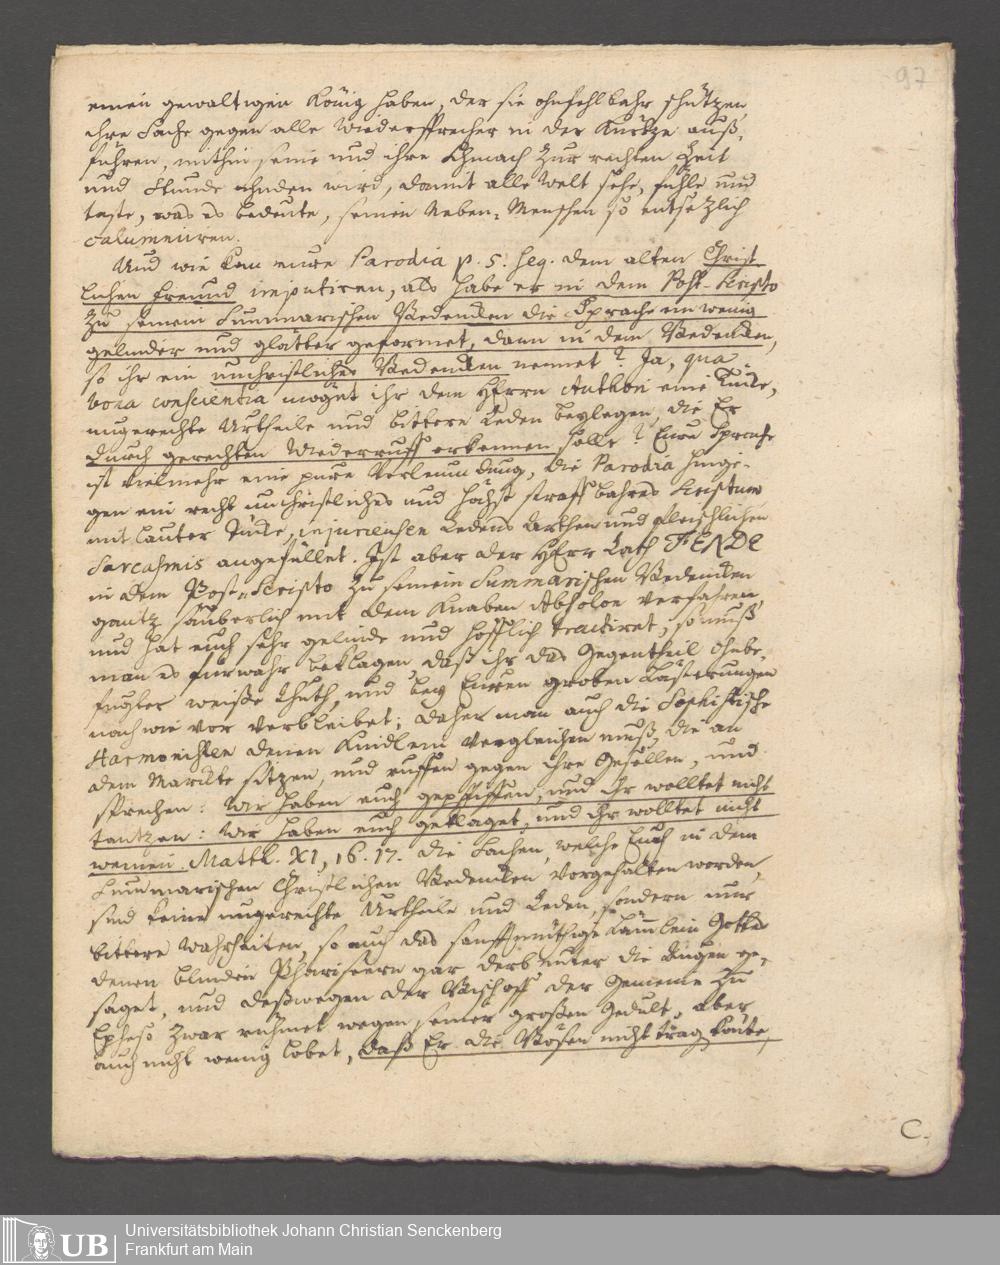 97
einen gewaltigen König haben, der sie ohnfehlbahr schützen,
ihre Sache gegen alle Wiedersprecher in der Kürtze auß-
führen, mithin seine und ihre Schmach zur rechten Zeit
und Stunde ahnden wird, damit alle Welt sehe, fühle und
taste, was es bedeute, seinen Neben-Menschen so entsetzlich
calumniiren.
Und wie kan eure Parodia p. 5. seq. dem alten Christ-
lichen Freund imputiren, als habe er in dem Post-Scripto
zu seinem Summarischen Bedencken die Sprache ein wenig
gelinder und glätter geformet, dann in dem Bedencken,
so ihr ein unchristliches Bedencken nennet? Ja, qua
bona conscientia möget ihr dem HErrn Authori eine
ungerechte Urtheile und bittere Reden beylegen, die Er
durch gerechten Wiederruff erkennen solle? Eure Sprache
ist vielmehr eine pure Verleumbdung, die Parodia hinge-
gen ein recht unchristliches und höchst straffbahres Scriptum
mit lauter injurieusen Redens Arthen und fleischlichen
Sarcasmis angefüllet. Ist aber der HErr Rath FENDE
in dem Post-Scripto zu seinem Summarischen Bedencken
gantz säuberlich mit dem Knaben Absolon verfahren,
und hat euch sehr gelinde und höfflich tractiret, so muß
man es fürwahr beklagen, daß ihr das Gegentheil ohnbe-
fugter weiße thuth, und bey Euren groben Lästerungen
nach wie vor verbleibet; daher man auch die Sophistische
Harmonisten denen Kindlein vergleichen muß, die an
dem Marckte sitzen, und ruffen gegen ihre Gesellen, und
sprechen: Wir haben euch gepfiffen, und ihr wolltet nicht
tantzen: Wir haben euch geklaget, und ihr wolltet nicht
weinen. Matth. XI, 16. 17. Die Sachen, welche Euch in dem
Summarischen Christlichen Bedencken vorgehalten worden,
sind keine ungerechte Urtheile und Reden, sondern nur
bittere Wahrheiten, so auch das sanfftmüthige Lämmlein Gottes
denen blinden Phariseern gar derb unter die Augen ge-
saget, und deßwegen der Bischoff der Gemeine zu
Epheso zwar rühmet wegen seiner großen Gedult, aber
auch nicht wenig lobet, daß Er die Bösen nicht trag könte,
C.
UB
Universitätsbibliothek Johann Christian Senckenberg
Frankfurt am Main